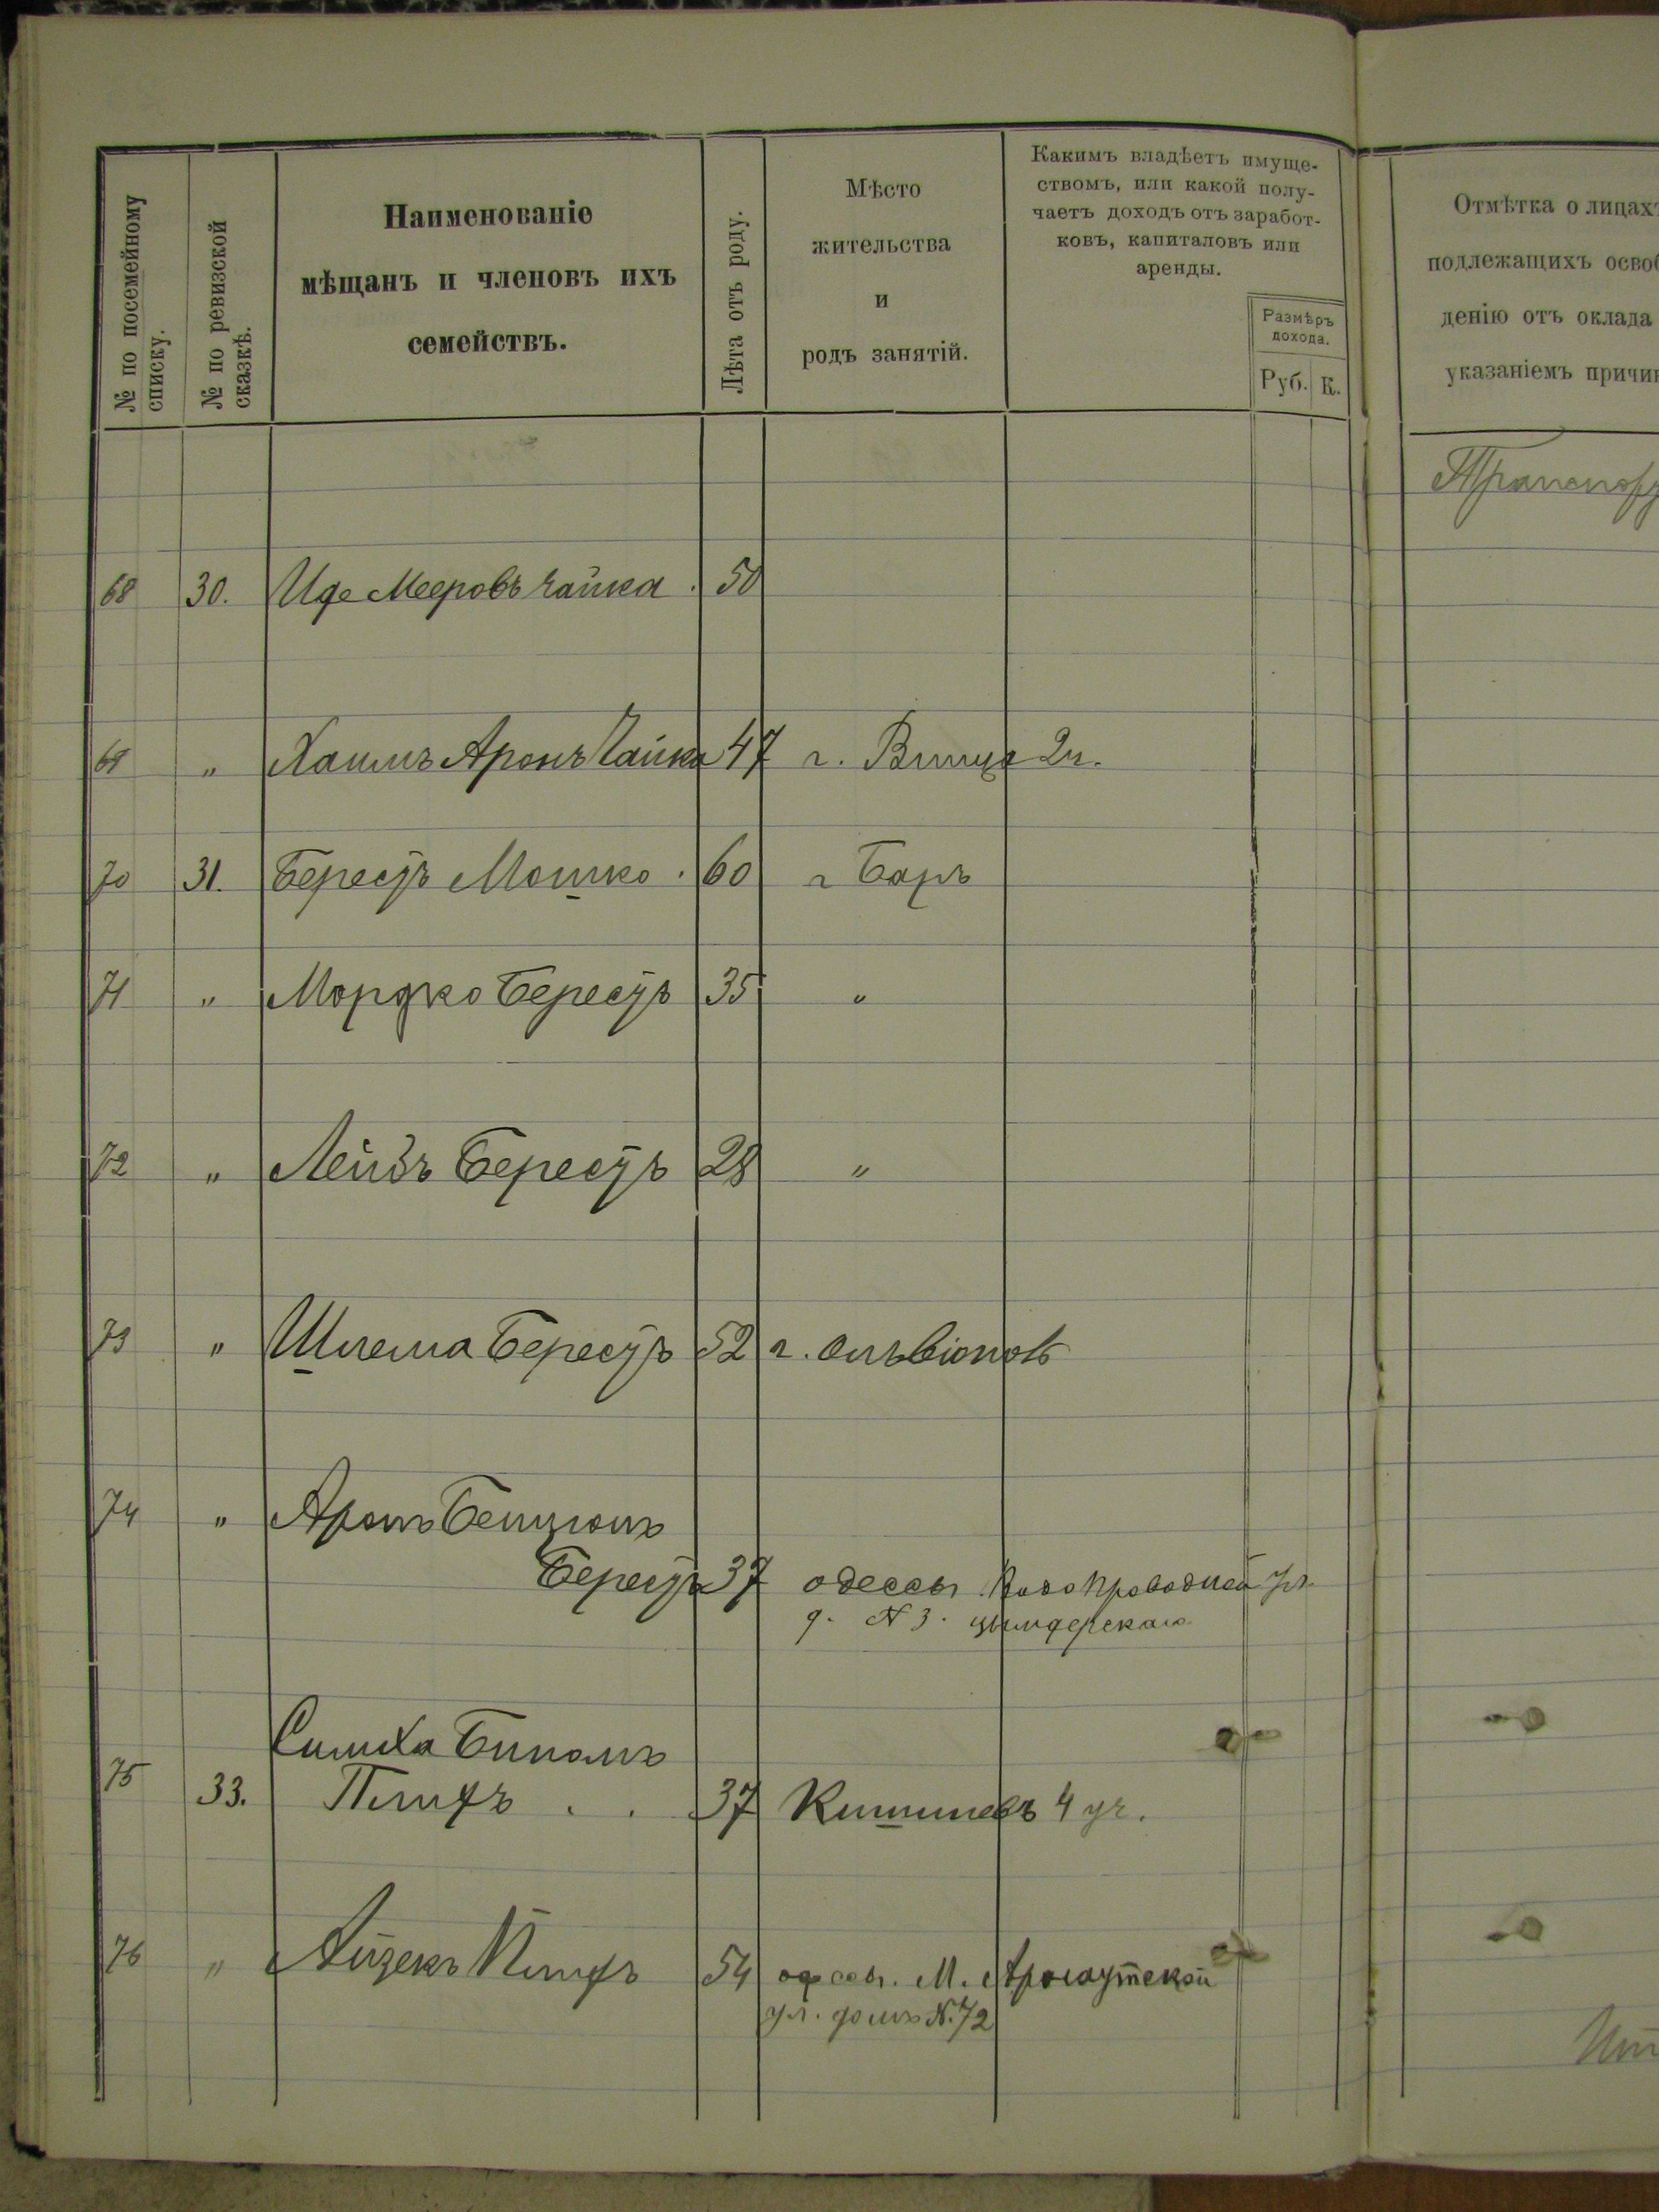 № по посемейному
списку.
№ по ревизской
сказкѣ.
Наименованіе
мѣщанъ и членовъ ихъ
семействъ.
Лѣта отъ роду.
Мѣсто
жительства
и
родъ занятій.
Какимъ владѣетъ имуще-
ствомъ, или какой полу-
чаетъ доходъ отъ заработ-
ковъ, капиталовъ или
аренды.
Размѣръ
дохода.
Руб. К.
Отмѣтка о лицахъ
подлежащихъ освоб
денію отъ оклада
указаніемъ причин
Транспор
68 30. Иде Мееровъ Чайка . 50
69 " Хаимъ Аронъ Чайка 47 г.
70 31. Бересъ Мошко . 60 г Баръ
71 " Мордко Бересъ 35 "
72 " Лейбъ Бересъ 28 "
73 " Шлема Бересъ 52 г.
74 " Аронъ Бенціонъ
Бересъ 37 одессы Водопроводной ул.
д. N 3.
Симха Биномъ
75 33. . . 37 Кишиневъ 4 уч.
76 " Айзекъ 54 одессы. М. Арнаутской
ул. домъ N. 72
Ит